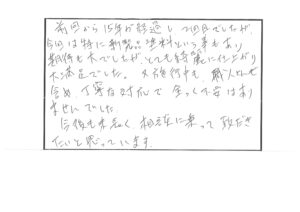 前回から15年が経過し2回目でしたが、
今回は特に新製品塗料という事もあり
期待も大でしたが、とても綺麗に仕上がり
大満足でした。又施行中も、職人さんも
含め、丁寧な対応で全っく不安はあり
ませんでした。
今後も末永く、相談に乗って頂だき
たいと思っています。